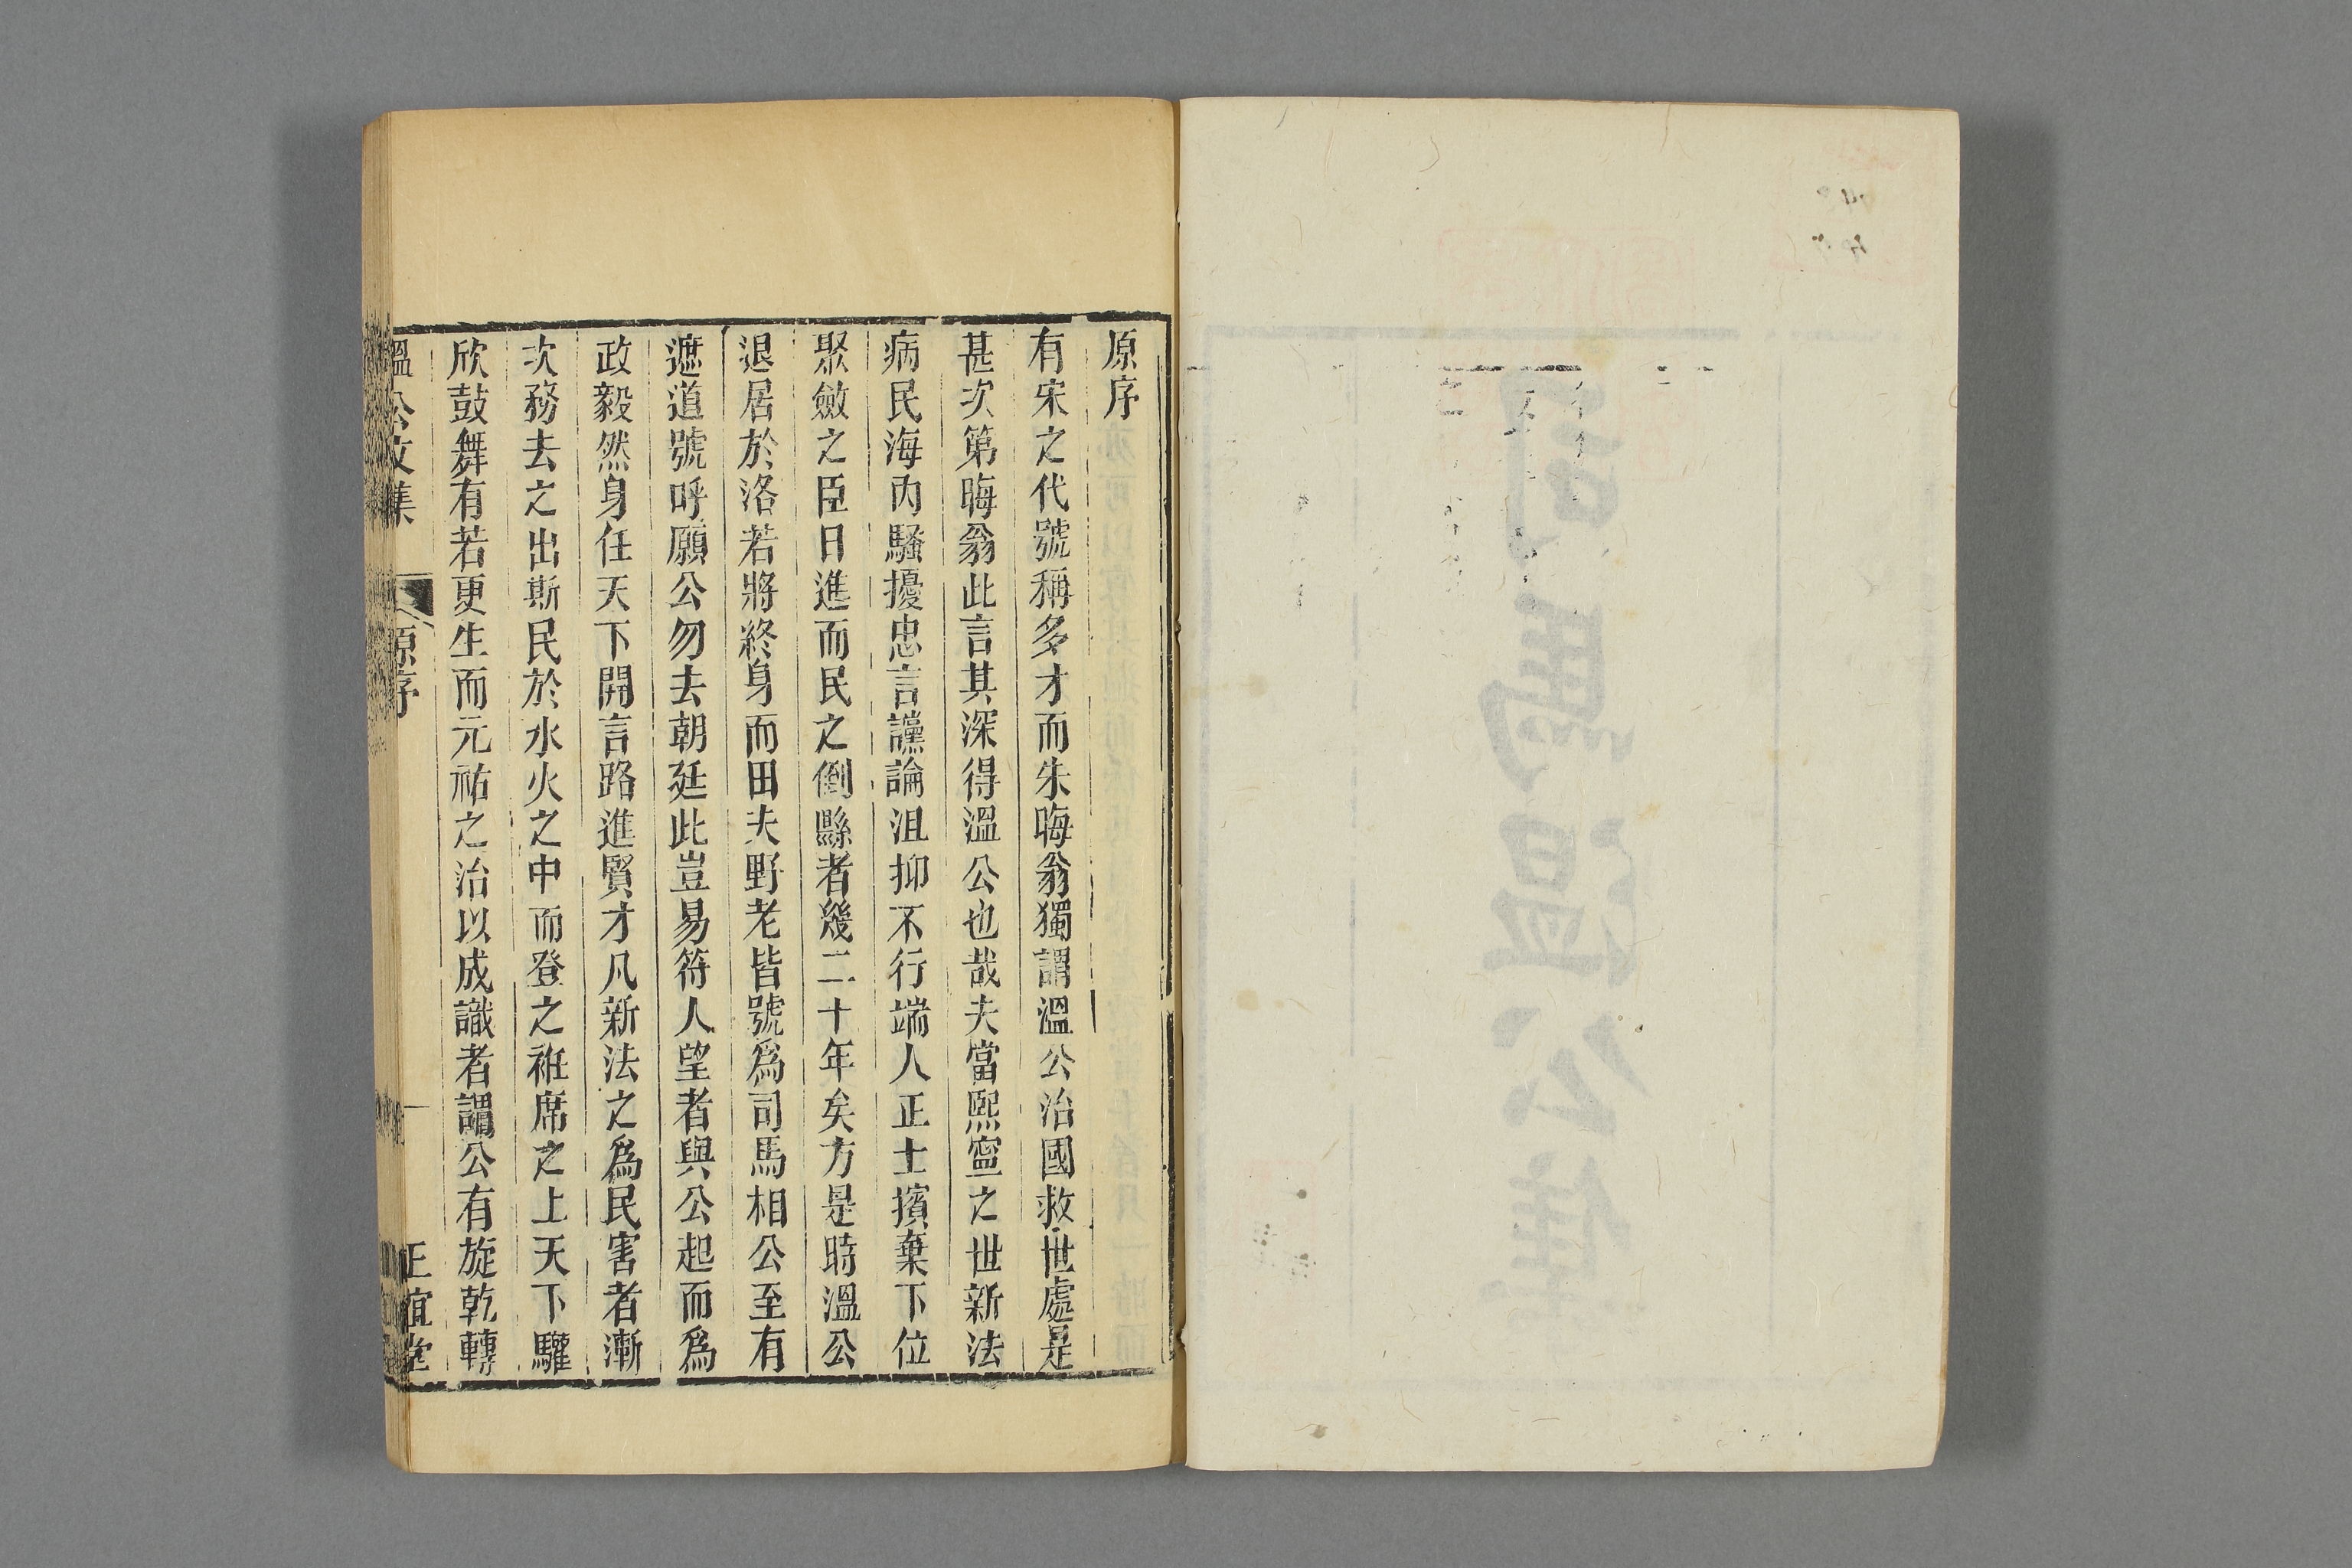 原序
有宋之代號稱多才而朱晦翁獨謂溫公治國救世處是
甚次第晦翁此言其深得溫公也哉夫當熙寧之世新法
病民海內騷擾忠言讜論沮抑不行端人正士擯棄下位
聚斂之臣日進而民之倒縣者幾二十年矣方是時溫公
退居於洛若將終身而田夫野老皆號爲司馬相公至有
遮道號呼願公勿去朝廷此豈易符人望者與公起而爲
政毅然身任天下開言路進賢才凡新法之爲民害者漸
次務去之出斯民於水火之中而登之袵席之上天下驩
欣鼓舞有若更生而元祐之治以成識者謂公有旋乾轉
溫公文集 原序 一 正誼堂